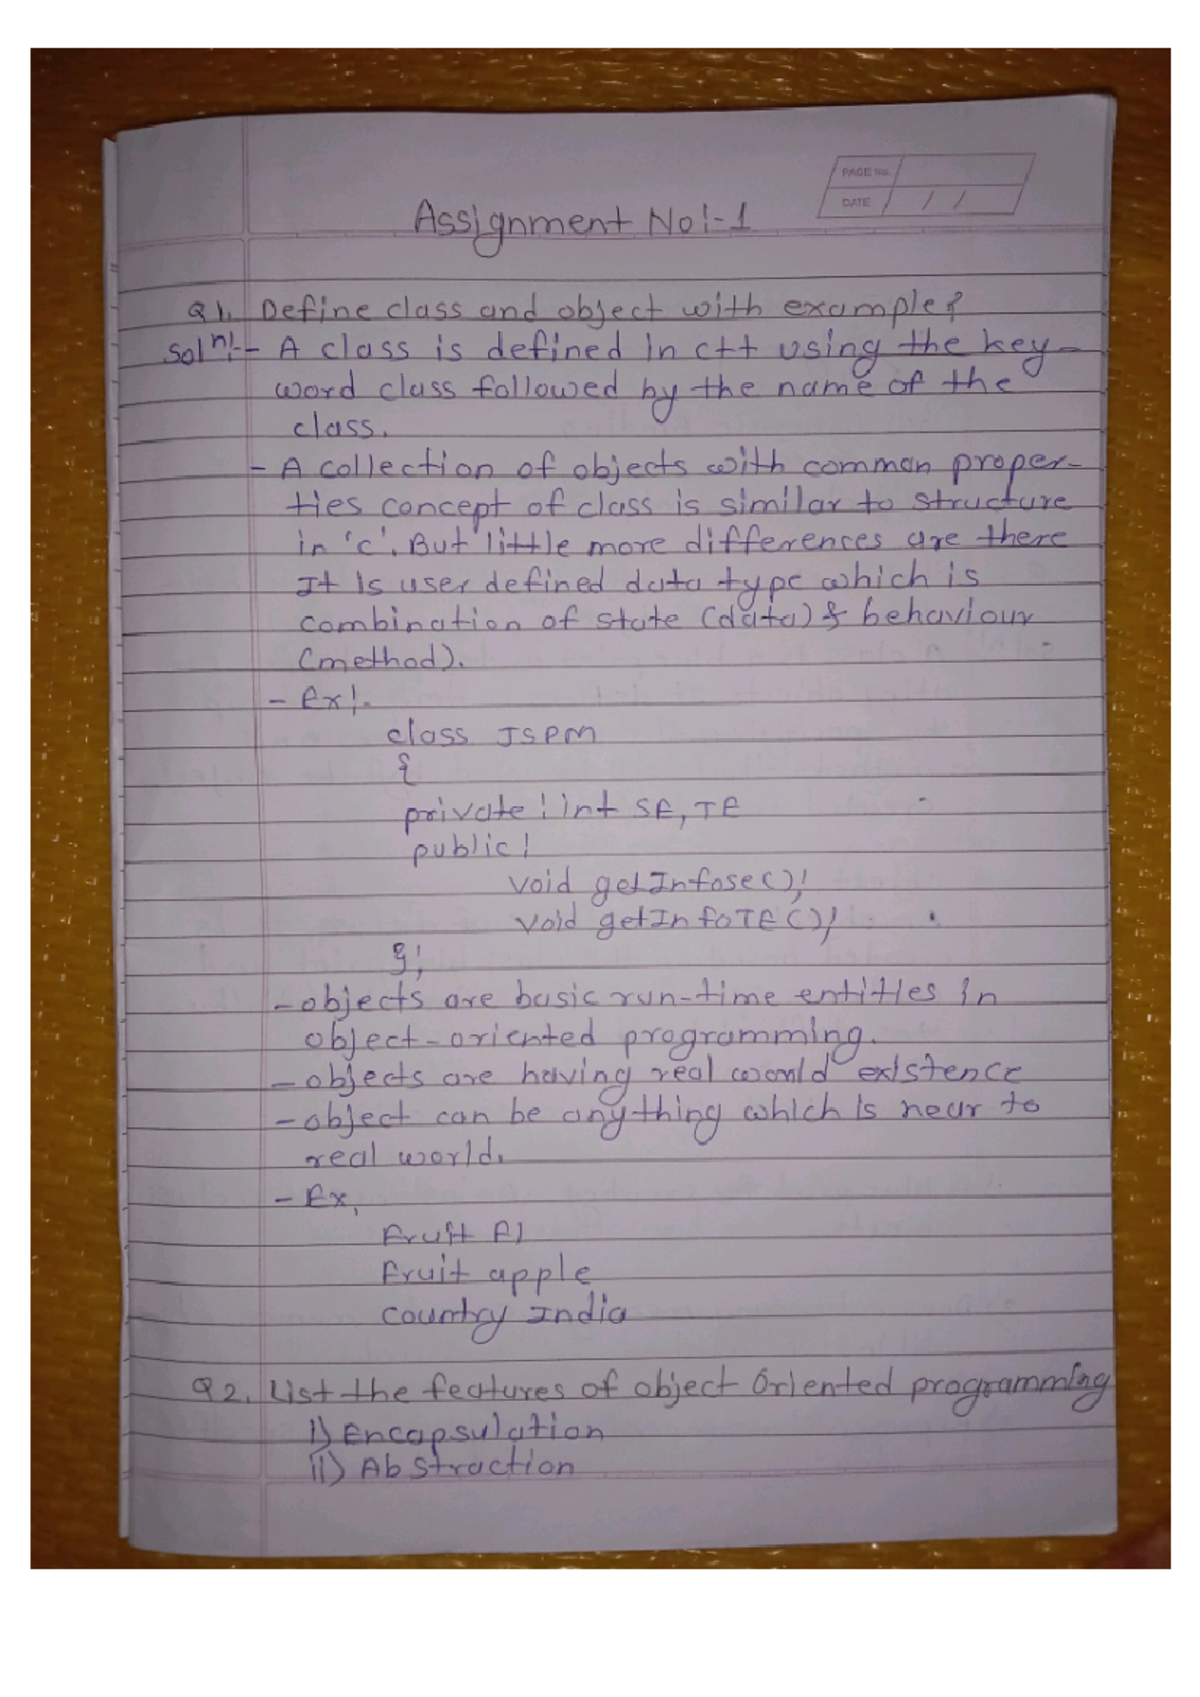 PAGE No.
DATE / /
Assignment No:-1
Q1. Define class and object with example?
Soln:- - A class is defined in c++ using the key-
word class followed by the name of the
class.
- A collection of objects with common proper-
ties concept of class is similar to structure
in 'c'. But little more differences are there
It is user defined data type which is
combination of state (data) & behaviour
(method).
- Ex:-
class JSPM
{
private: int SE, TE
public:
void getInfose();
void getInfoTE();
};
- objects are basic run-time entities in
object-oriented programming.
- objects are having real would existence
- object can be anything which is near to
real world.
- Ex,
Fruit
Fruit apple
Country India
Q2. List the features of object Oriented programming
i) Encapsulation
ii) Abstraction